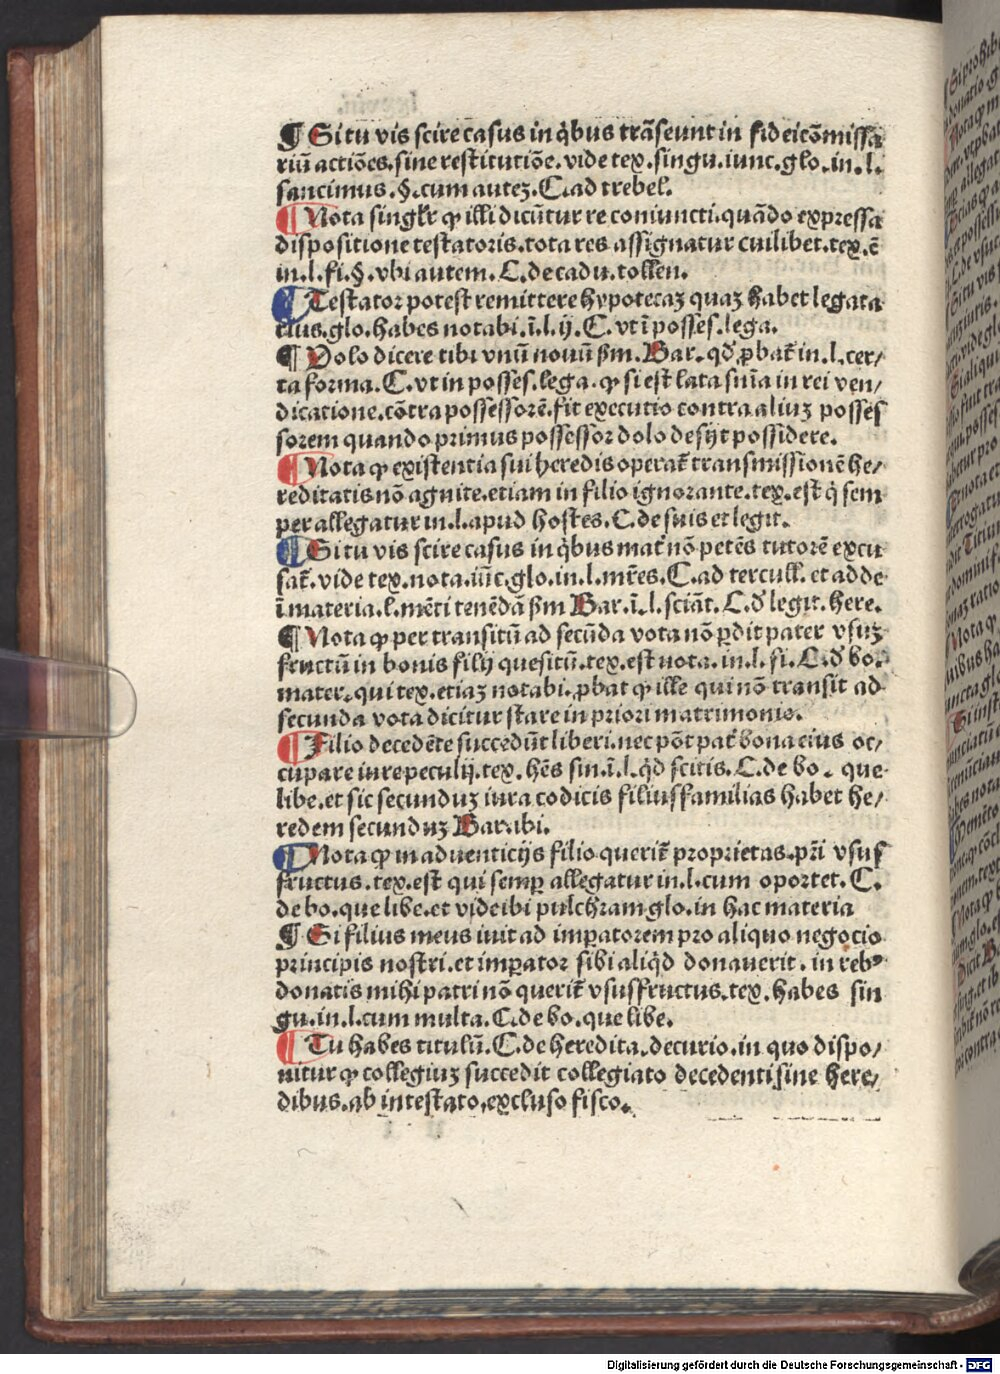 ¶ Si tu vis scire casus in q̇bus trāseunt in fideicōmissa
riū actiōes.sine restitutiōe.vide tex.singu.iunc.glo.in.l.
sancimus.§.cum auteꝫ.C.ad trebel.
¶ Nota singlr̄ ꝙ illi dicūtur re coniuncti.quādo expressa
dispositione testatoris.tota res assignatur cuilibet.tex.ē
in.l.fi.§.vbi autem.C.de cadu.tollen.
¶ Testator potest remittere hypotecaꝫ quaꝫ habet legata
rius.glo.habes notabi.ī.l.ij.C.vt ī posses.lega.
¶ Volo dicere tibi vnū nouū ẜm.Bar.qđ ꝓbat̄ in.l.cer/
ta forma.C.vt in posses.lega.ꝙ si est lata sn̄ia in rei ven/
dicatione.cōtra possessorē.fit executio contra aliuꝫ posses
sorem quando primus possessor dolo desijt possidere.
¶ Nota ꝙ existentia sui heredis operat̄ transmissionē he/
reditatis nō agnite.etiam in filio ignorante.tex.est q̇ sem
per allegatur in.l.apud hostes.C.de suis et legit.
¶ Si tu vis scire casus in q̇bus mat̄ nō petēs tutorē excu
sat̄.vide tex.nota.iūc.glo.in.l.mr̄es.C.ad tercull.et adde
ī materia.l.mēti tenēdā ẜm Bar.ī.l.sciāt.C.đ legit.here.
¶ Nota ꝙ per transitū ad secūda vota nō ꝑdit pater vsuꝫ
fructū in bonis filij quesitū.tex.est nota.in.l.fi.C.đ bo.
mater.qui tex.etiaꝫ notabi.ꝓbat ꝙ ille qui nō transit ad
secunda vota dicitur stare in priori matrimonio.
¶ Filio decedēte succedūt liberi.nec pōt pat̄ bona eius oc/
cupare iure peculij.tex.hēs sin.ī.l.q̇d scitis.C.de bo. que
libe.et sic secunduꝫ iura codicis filiusfamilias habet he/
redem secunduꝫ Bar.ubi.
¶ Nota ꝙ in aduenticijs filio querit̄ proprietas.pr̄i vsuf
fructus.tex.est qui semꝑ allegatur in.l.cum oportet.C.
de bo.que libe.et vide ibi pulchram glo.in hac materia
¶ Si filius meus iuit ad imꝑatorem pro aliquo negocio
principis nostri.et imꝑator sibi aliq̇d donauerit.in rebꝰ
donatis mihi patri nō querit̄ vsusfructus.tex.habes sin
gu.in.l.cum multa.C.de bo.que libe.
¶ Tu habes titulū.C.de heredita.decurio.in quo dispo/
nitur ꝙ collegiuꝫ succedit collegiato decedenti sine here/
dibus.ab intestato.excluso fisco.
Digitalisierung gefördert durch die Deutsche Forschungsgemeinschaft - DFG